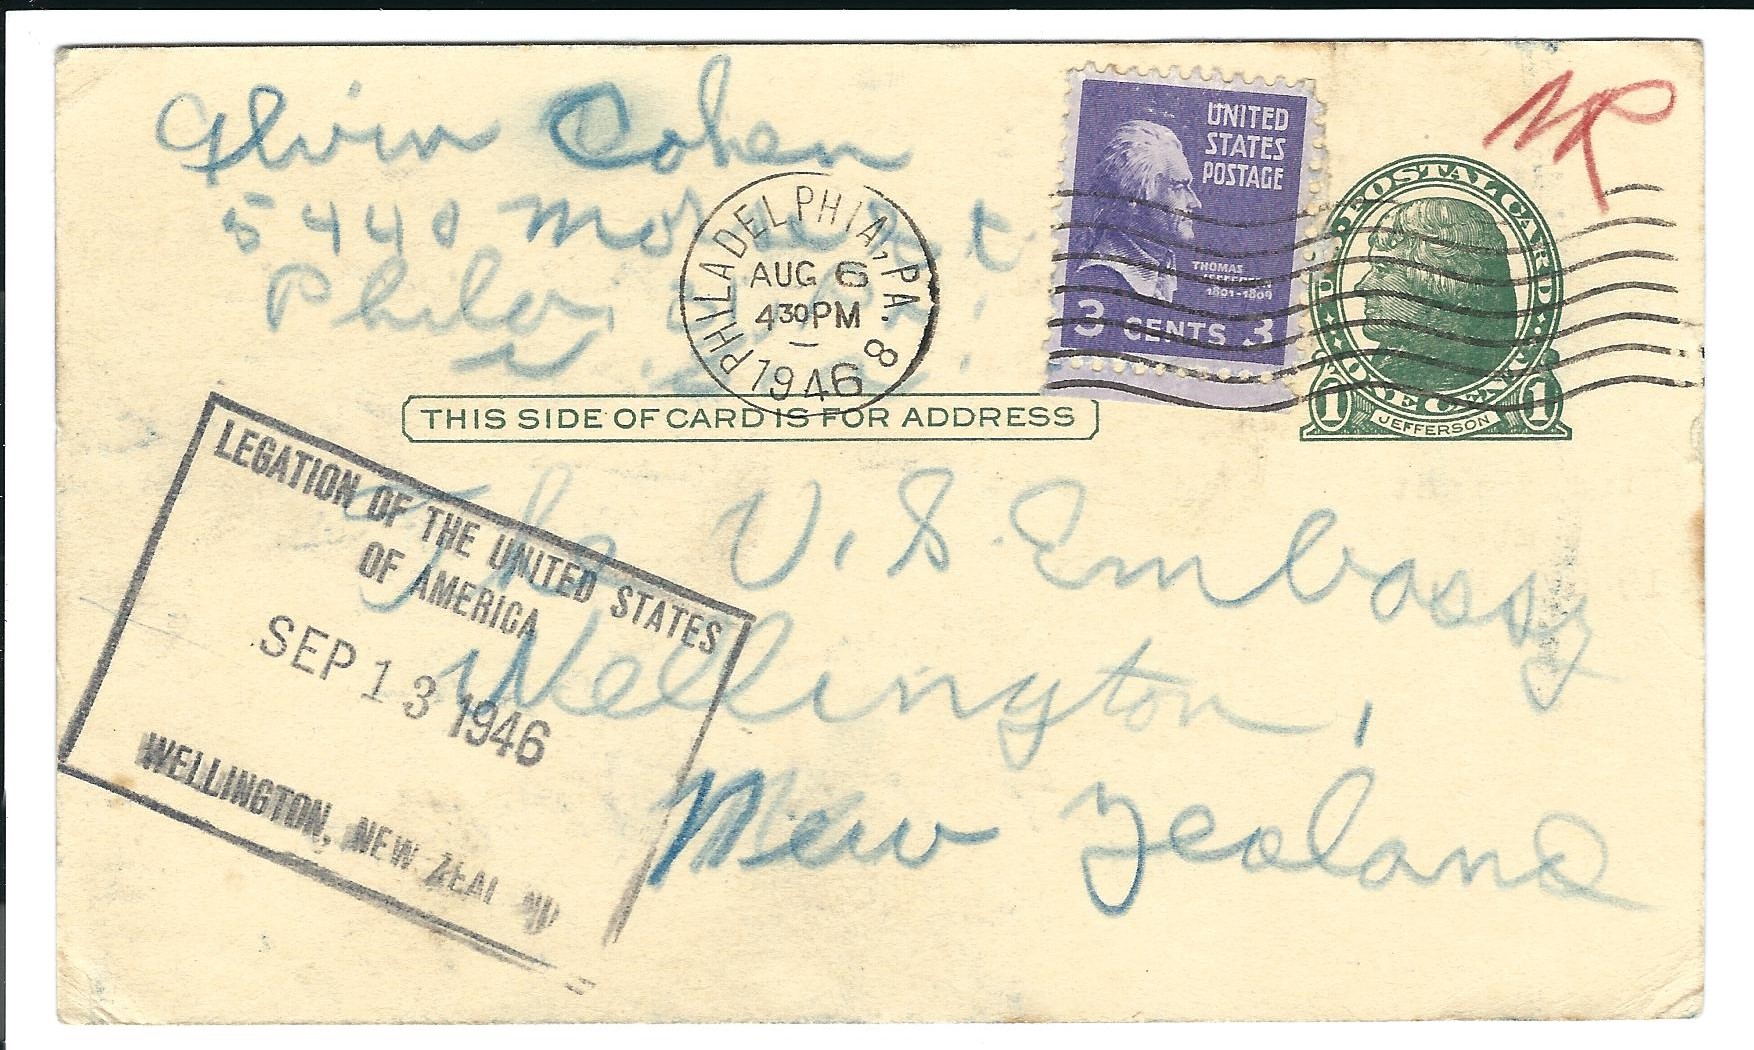 Alvin Cohen
5440
Phila
PHILADELPHIA, PA. 8
AUG 6
4 30 PM
1946
UNITED
STATES
POSTAGE
THOMAS
JEFFERSON
1801-1809
3 CENTS 3
NR
U·S·POSTAL CARD·
1 ONE CENT 1
JEFFERSON
THIS SIDE OF CARD IS FOR ADDRESS
LEGATION OF THE UNITED STATES
OF AMERICA
SEP 13 1946
WELLINGTON, NEW ZEALAND
The U.S. Embassy
Wellington,
New Zealand